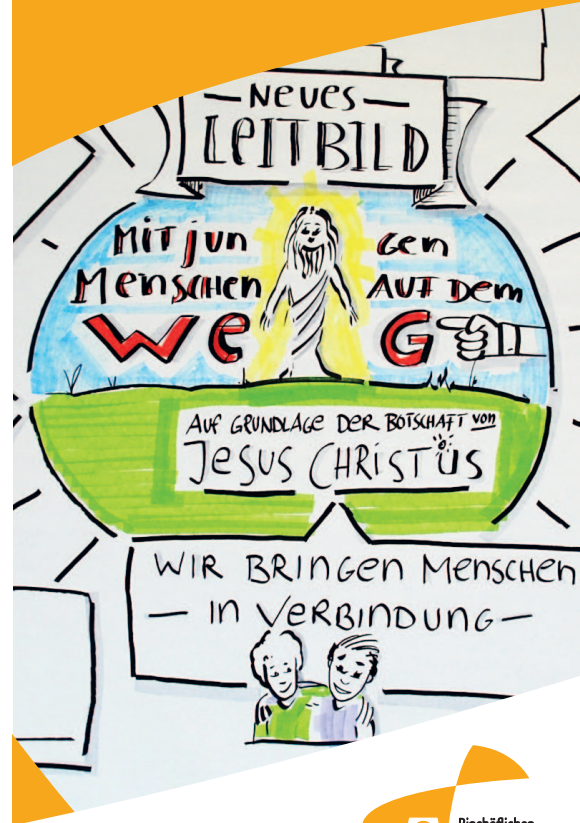 — NEUES —
LEITBILD
MIT JUNGEN
MENSCHEN AUF DEM
WEG
AUF GRUNDLAGE DER BOTSCHAFT VON
JESUS CHRISTUS
WIR BRINGEN MENSCHEN
— IN VERBINDUNG —
Bischöfliches